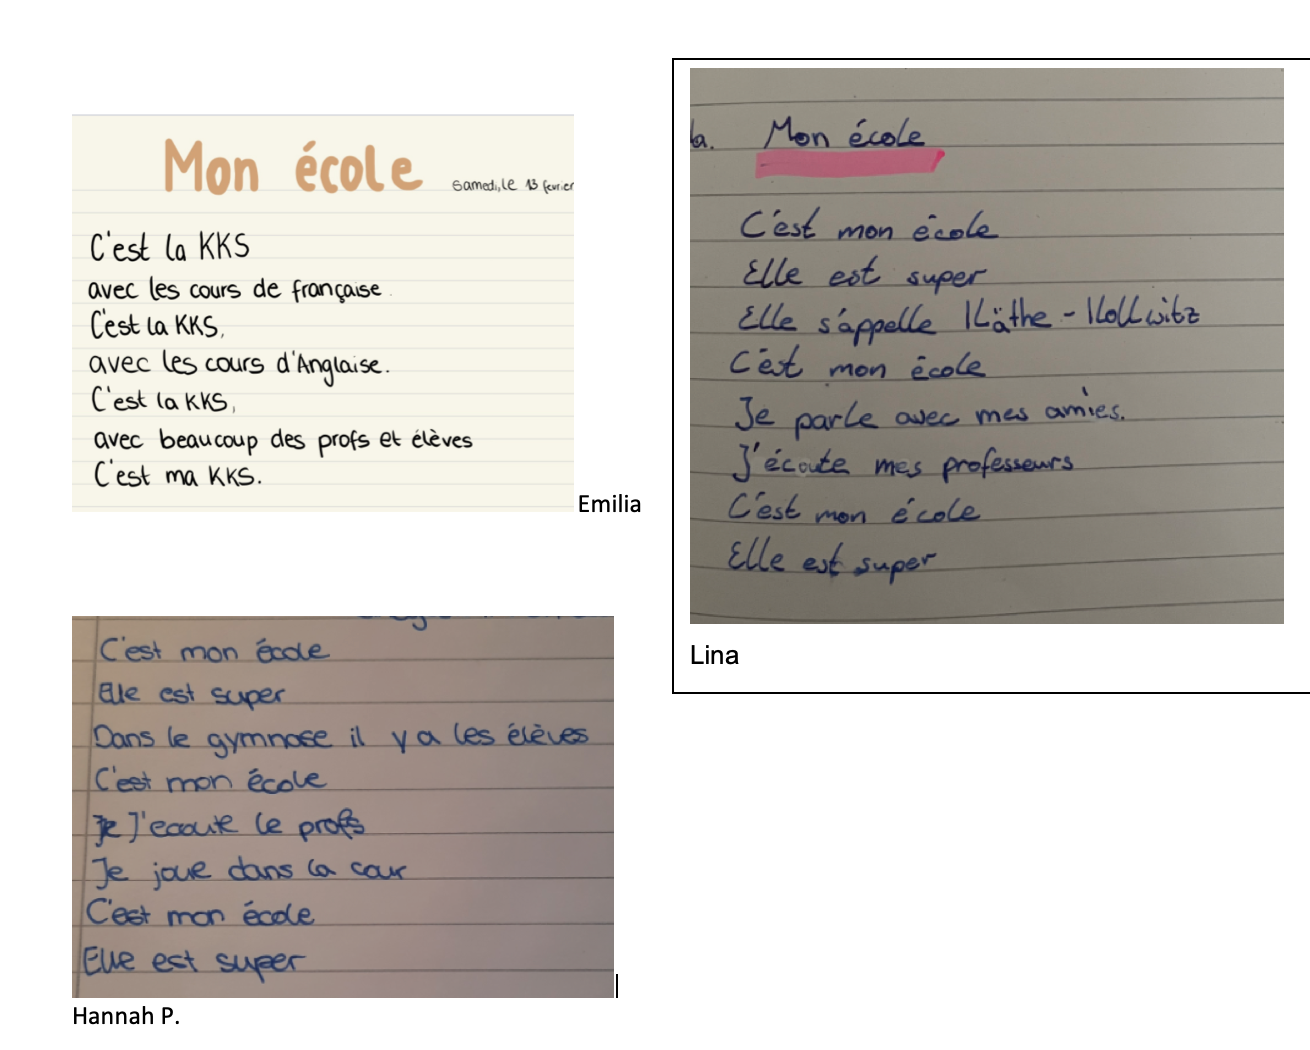 Mon école
Samedi, le 13 fevrier
C'est la KKS
avec les cours de française.
C'est la KKS,
avec les cours d'Anglaise.
C'est la KKS,
avec beaucoup des profs et élèves
C'est ma KKS.
Emilia
a. Mon école
C'est mon école
Elle est super
Elle s'appelle Käthe-Kollwitz
C'est mon école
Je parle avec mes amies.
J'écoute mes professeurs
C'est mon école
Elle est super
Lina
C'est mon école
Elle est super
Dans le gymnase il y a les élèves
C'est mon école
J'ecoute le profs
Je joue dans la cour
C'est mon école
Elle est super
Hannah P.